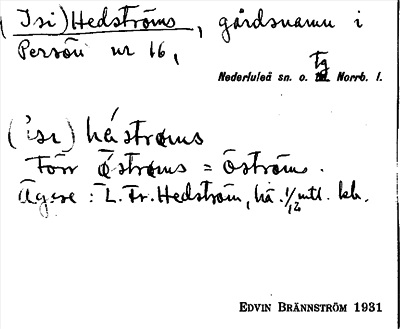 (Isi) Hedströms, gårdsnamn i
Persön nr 16,
Nederluleå sn. o. Tg Norrb. l.
('isi) hástrøms
Förr Öströms = Öström.
Ägare: L. Fr. Hedström, ha. 1/12 mtl. kh.
EDVIN BRÄNNSTRÖM 1931